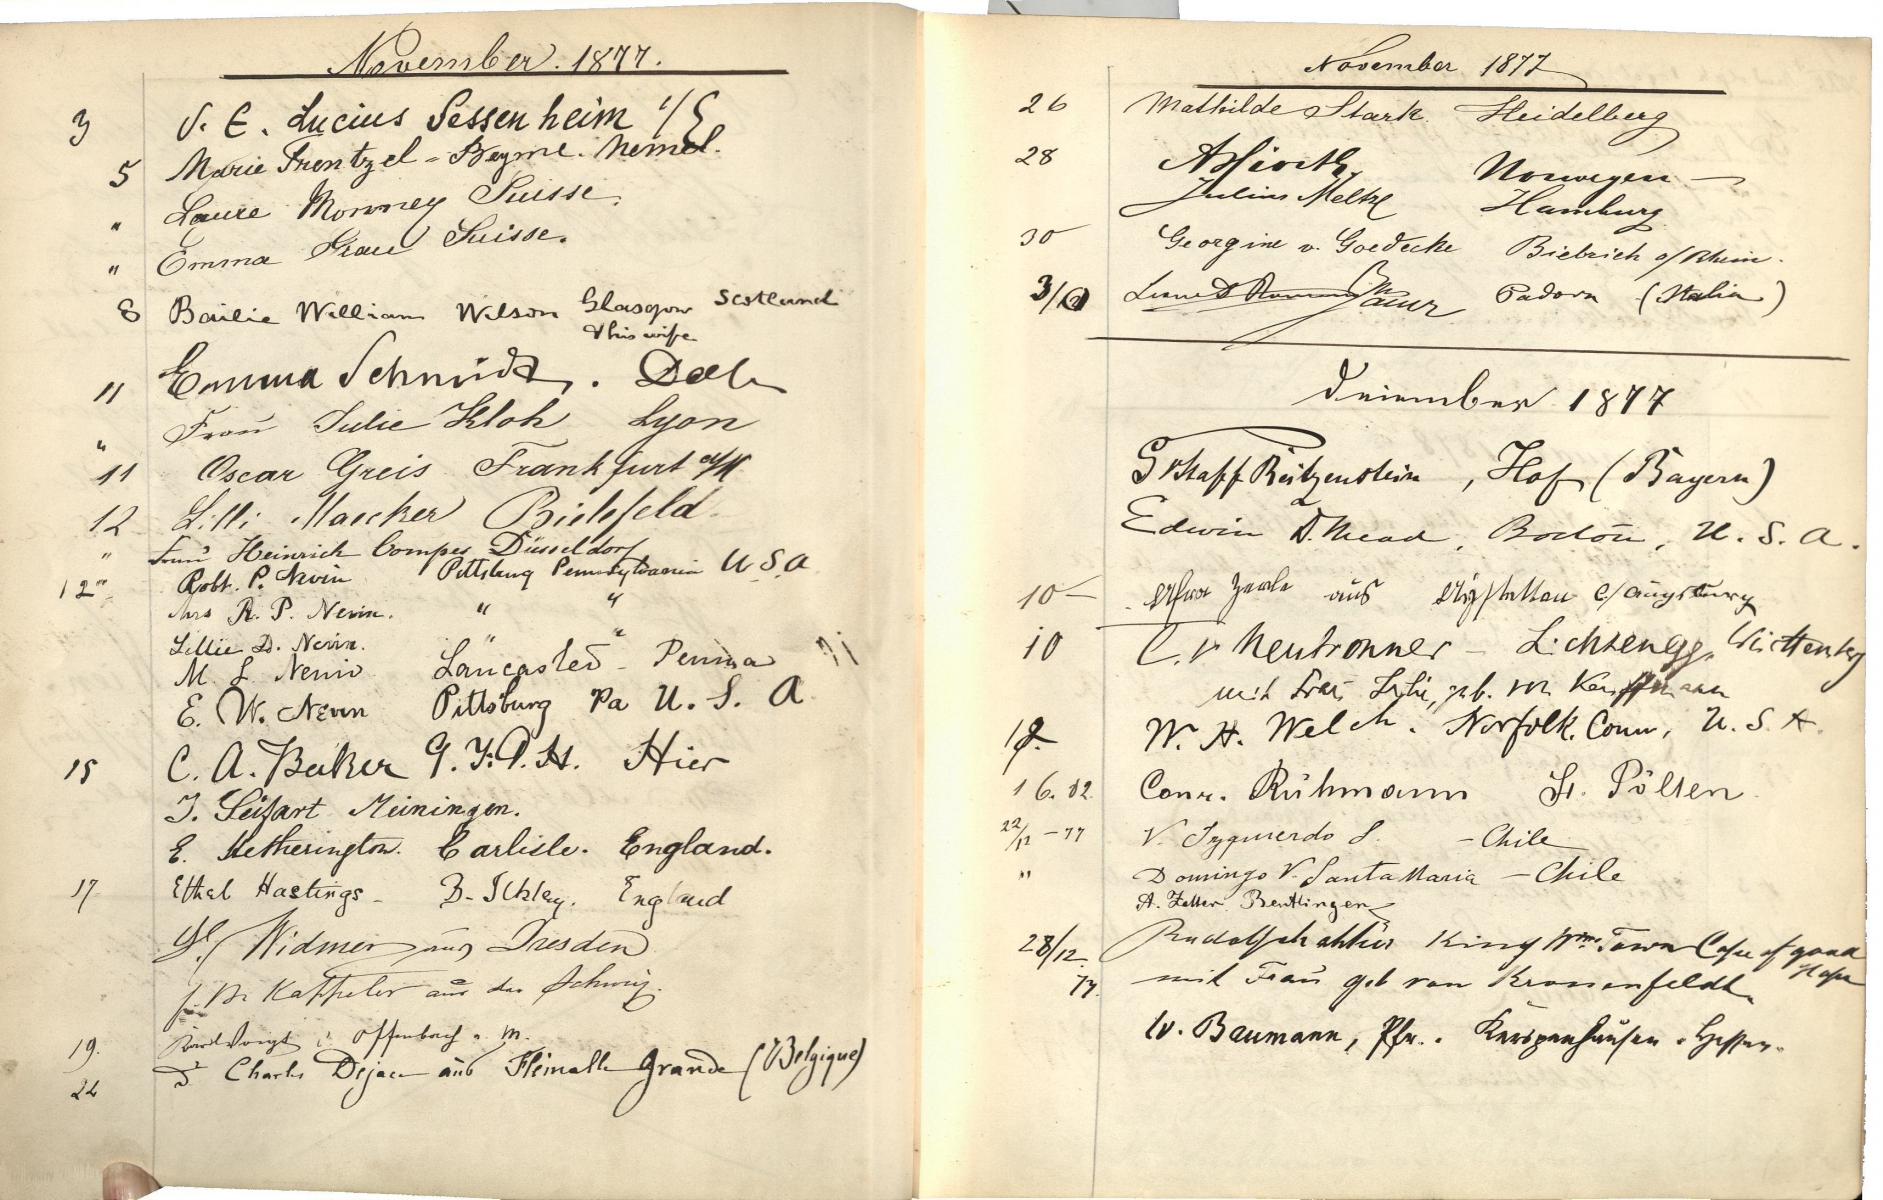 November. 1877.
3 P. E. Lucius Sessenheim i/E
5 Marie Frentzel-Beyme. Memel.
" Laure Monney Suisse.
" Emma Grau Suisse.
8 Bailie William Wilson Glasgow Scotland
& his wife
11 Emma Schmidt.
" Frau Julie Kloh Lyon
11 Oscar Greis Frankfurt a/M
12 Lilli Maecker Bielefeld.
" Frau Heinrich Compes Düsseldorf
12 Robt. P. Nevin Pittsburg Pennsylvania U.S.A
Mrs R. P. Nevin. " "
Lillie D. Nevin. " "
M. L. Nevin Lancaster - Penna
E. W. Nevin Pittsburg Pa U. S. A
15 C. A. Becker Hier
J. Seifart Meiningen.
E. Hetherington. Carlisle. England.
17. Ethel Hastings - B-Ilkley. England
Widmer aus Dresden
Kappeler aus der Schweiz.
19. Karl Voigt Offenbach a. M.
24 Charles Dejace aus Flémalle Grande (Belgique)
November 1877
26 Mathilde Stark Heidelberg
28 Norwegen —
Julius Melke Hamburg
30 Georgine v. Goedecke Biebrich a/Rhein.
Padova (Italia)
Dezember 1877
Gustaff Reitzenstein, Hof (Bayern)
Edwin D. Mead, Boston, U. S. A.
10 — aus b/Augsburg
10 C. v Neubronner - Lichtenegg, Württemberg
mit Frau, geb. von Kauffmann
12. W. H. Welch. Norfolk. Conn, U. S. A.
16. 12. Conr. Rühmann St. Pölten
22/12 - 77 V. Izquierdo S. - Chile
" Domingo V. Santa Maria - Chile
A. Zeller Reutlingen
28/12 77. King Wms Town Cape of good Hope
mit Frau geb von Kronenfeldt
W. Baumann, Pfr.. Kerspenhausen. Hessen.